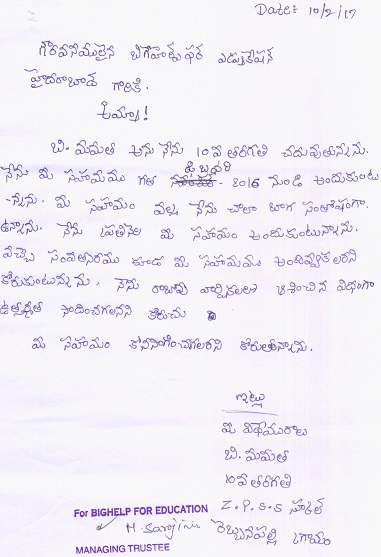 Date: 10/2/17
గౌరవనీయులైన బిగ్‌హెల్ప్ ఫర్ ఎడ్యుకేషన్
హైదరాబాద్ గారికి.
అమ్మా!
బి. మమత అను నేను 10వ తరగతి చదువుతున్నాను.
నేను మీ సహాయము గత 2016 నుండి అందుకుంటు
-న్నాను. మీ సహాయం వల్ల నేను చాలా బాగ సంతోషంగా
ఉన్నాను. నేను ప్రతినెల మీ సహాయం అందుకుంటున్నాను.
వచ్చె సంవత్సరము కూడ మీ సహాయము
కోరుకుంటున్నాను. నేను రాబోవు విధంగా
మీ సహాయం కోరుతున్నాను.
ఇట్లు
మీ విధేయురాలు
బి. మమత
10వ తరగతి
Z.P.S.S స్కూల్
రెబ్బనపల్లి గ్రామం
For BIGHELP FOR EDUCATION
M. Sarojini
MANAGING TRUSTEE